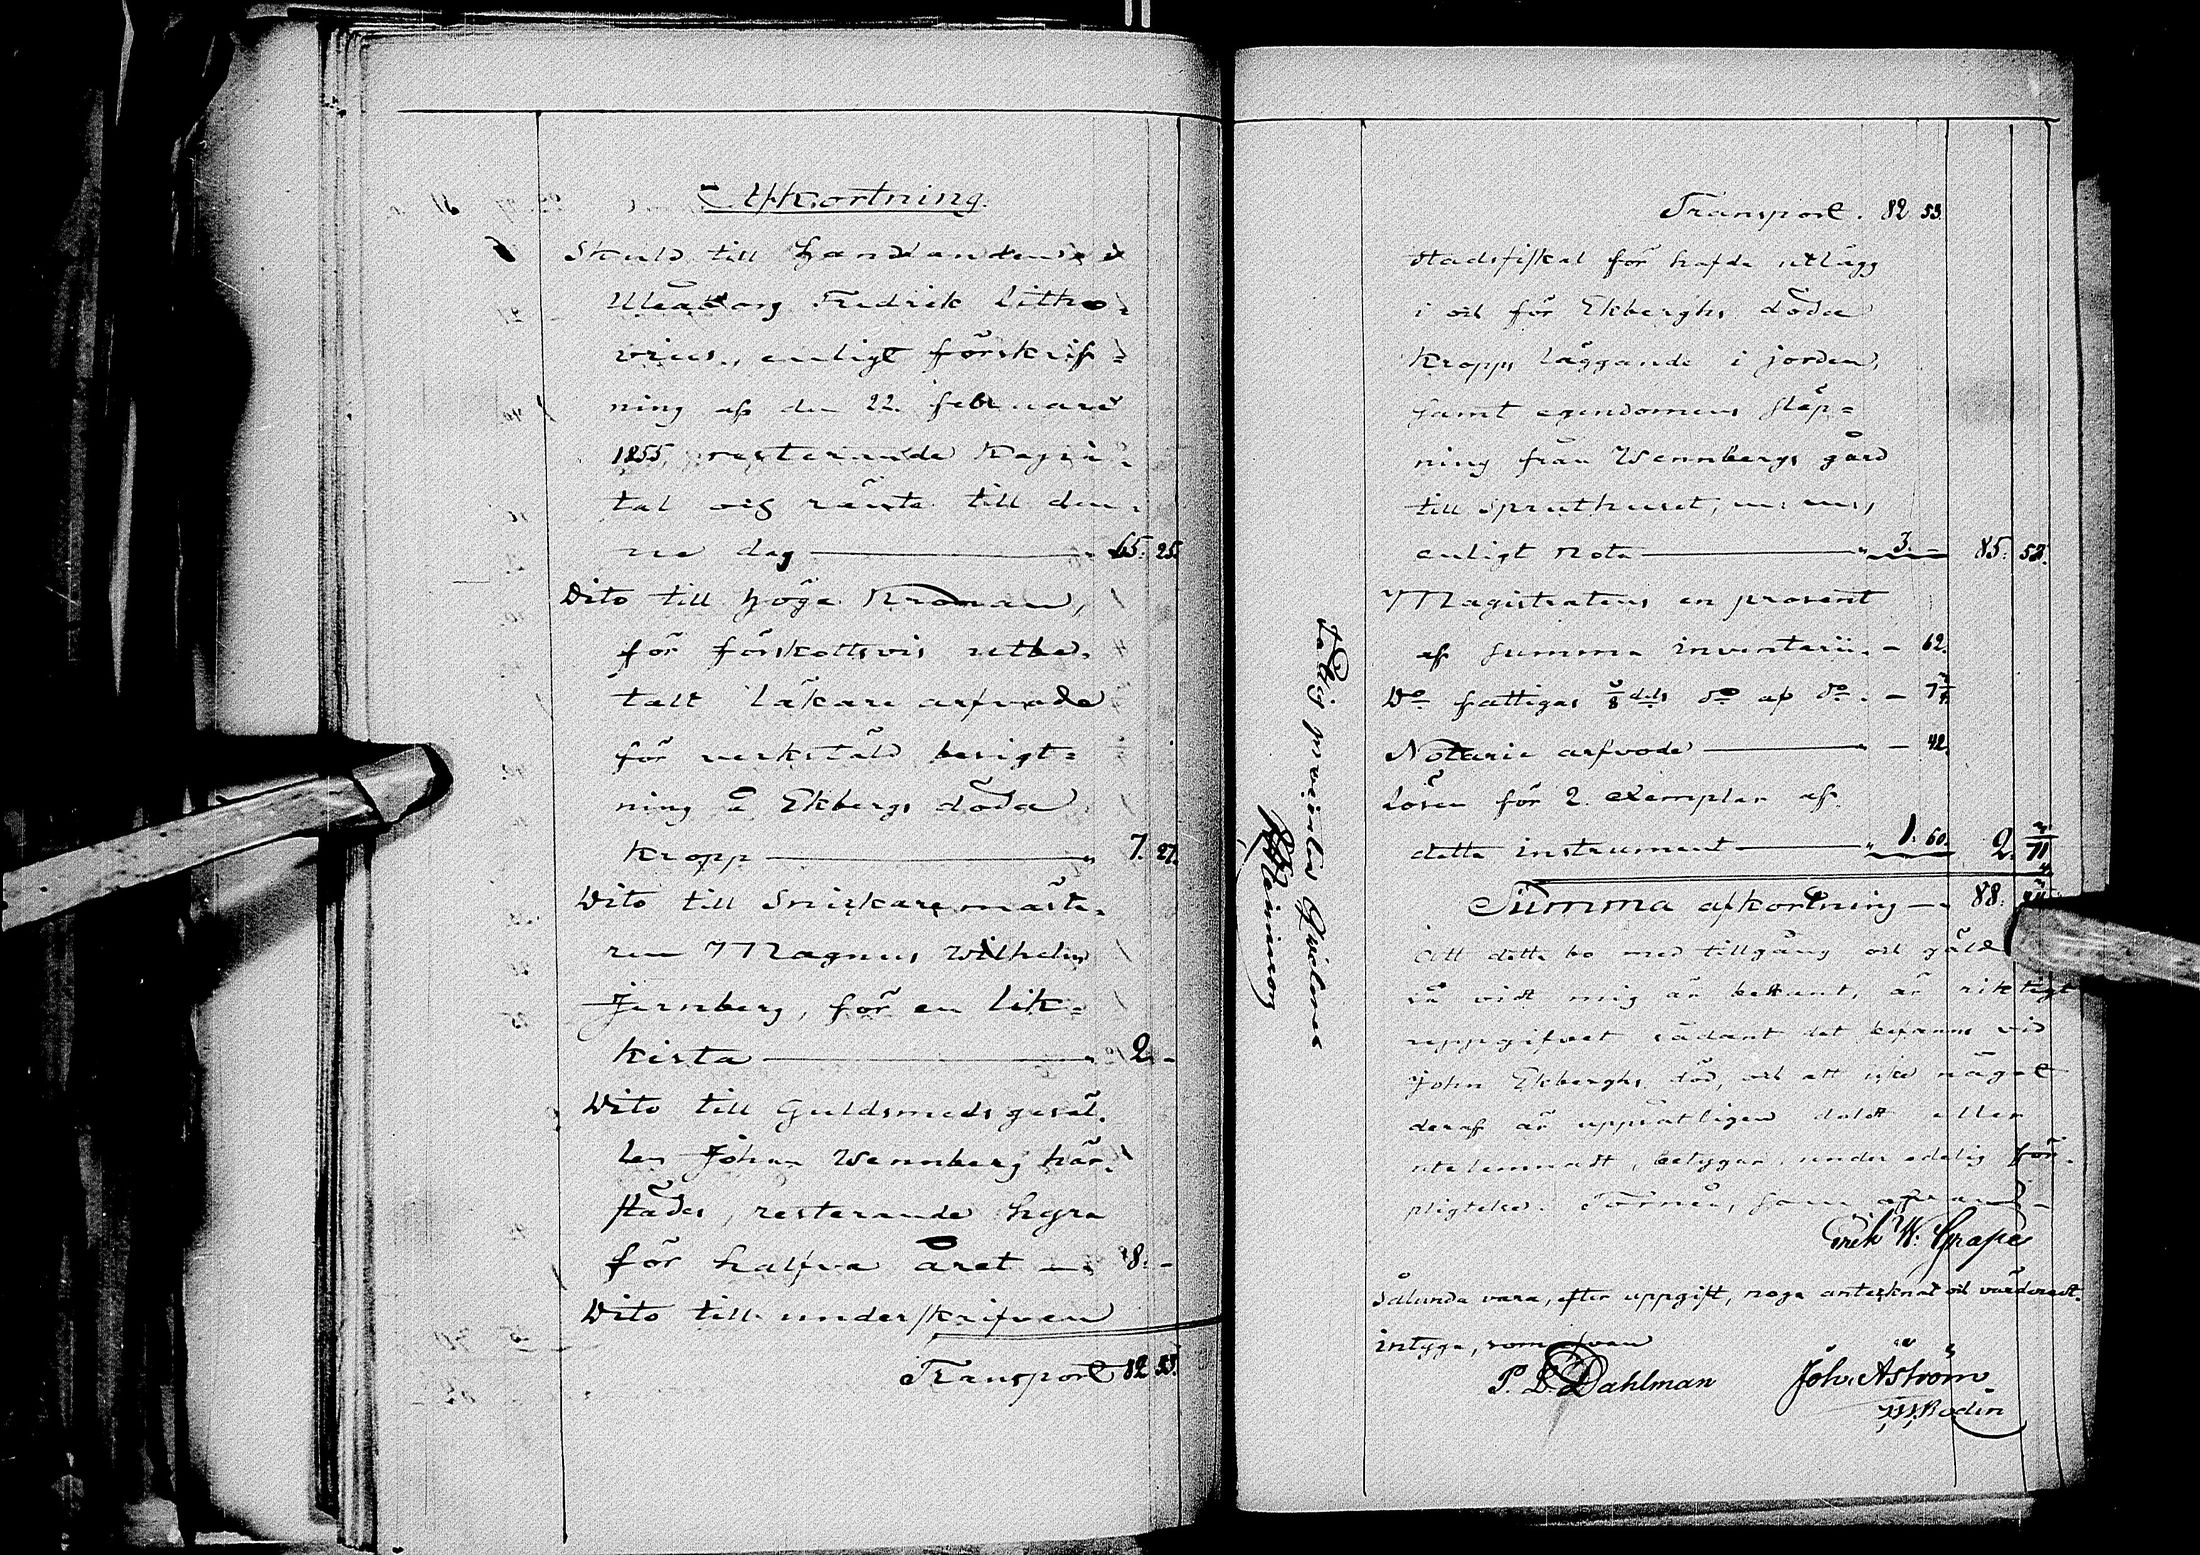 Afkortning.
Skuld till Handlanden i
Uleåborg Fredrik Litho-
vius, enligt förskrif=
ning af den 22. februari
1855, resterande Kapi-
tal och ränta till den-
na dag — 65. 25.
Dito till höga Kronan,
för förskottsvis utbe-
talt läkare arfvode
för verkstäld besigt=
ning å Ekbergs döda
kropp — 7. 27.
Dito till Snickaremäste-
ren Magnus Wilhelm
Jernberg, för en lik=
kista — 2. -
Dito till Guldsmedsgesäl-
len Johan Wennberg här-
städes, resterande hyra
för halfva året — 8. -
Dito till underskrifven
Transport 82 53.
Transport. 82 53.
stadsfiskal för hafde utlägg
i och för Ekberghs döda
kropps läggande i jorden,
samt egendomens släp=
ning från Wennbergs gård
till spruthuset, m: m:,
enligt Nota — 3. - 85. 53.
Magistratens en prosent
af Summa inventarii. - 62.
Do fattigas 1/8 dels do af do. - 7 3/4
Notarie arfvode — - 42.
Lösen för 2. exemplar af
detta instrument — 1. 60. 2. 71 3/4
Summa afkortning — 88.
Att detta bo med tillgång och gäld
så vidt mig är bekant, är riktigt
uppgifvet sådant det befanns vid
John Ekberghs död, och att icke något
deraf är uppsåtligen doldt eller
utelemnadt, betygar, under edelig för-
pligtelse. Torneå, som ofvan
Erik W. Grape
Sålunda vara, efter uppgift, noga antecknat och värderadt.
intyga, som ofvan
P. L. Dahlman Joh: Åström
Bodin